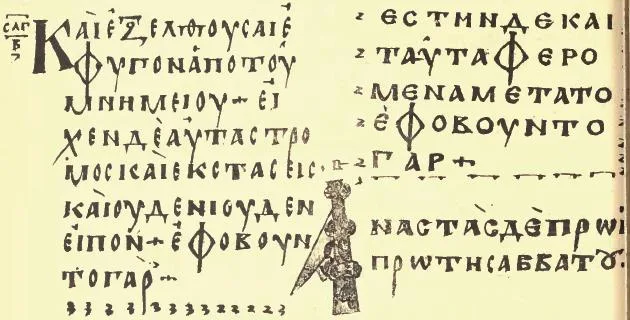 ϹΛΓ
Β
ΚΑΙΕΞΕΛΘΟΥϹΑΙΕ
ΦΥΓΟΝΑΠΟΤΟΥ
ΜΝΗΜΕΙΟΥ+ΕΙ
ΧΕΝΔΕΑΥΤΑϹΤΡΟ
ΜΟϹΚΑΙΕΚϹΤΑϹΕΙϹ·
ΚΑΙΟΥΔΕΝΙΟΥΔΕΝ
ΕΙΠΟΝ+ΕΦΟΒΟΥΝ
ΤΟΓΑΡ+
ΕϹΤΗΝΔΕΚΑΙ
ΤΑΥΤΑΦΕΡΟ
ΜΕΝΑΜΕΤΑΤΟ
ΕΦΟΒΟΥΝΤΟ
ΓΑΡ+
ΑΝΑϹΤΑϹΔΕΠΡΩΙ
ΠΡΩΤΗϹΑΒΒΑΤȣ·